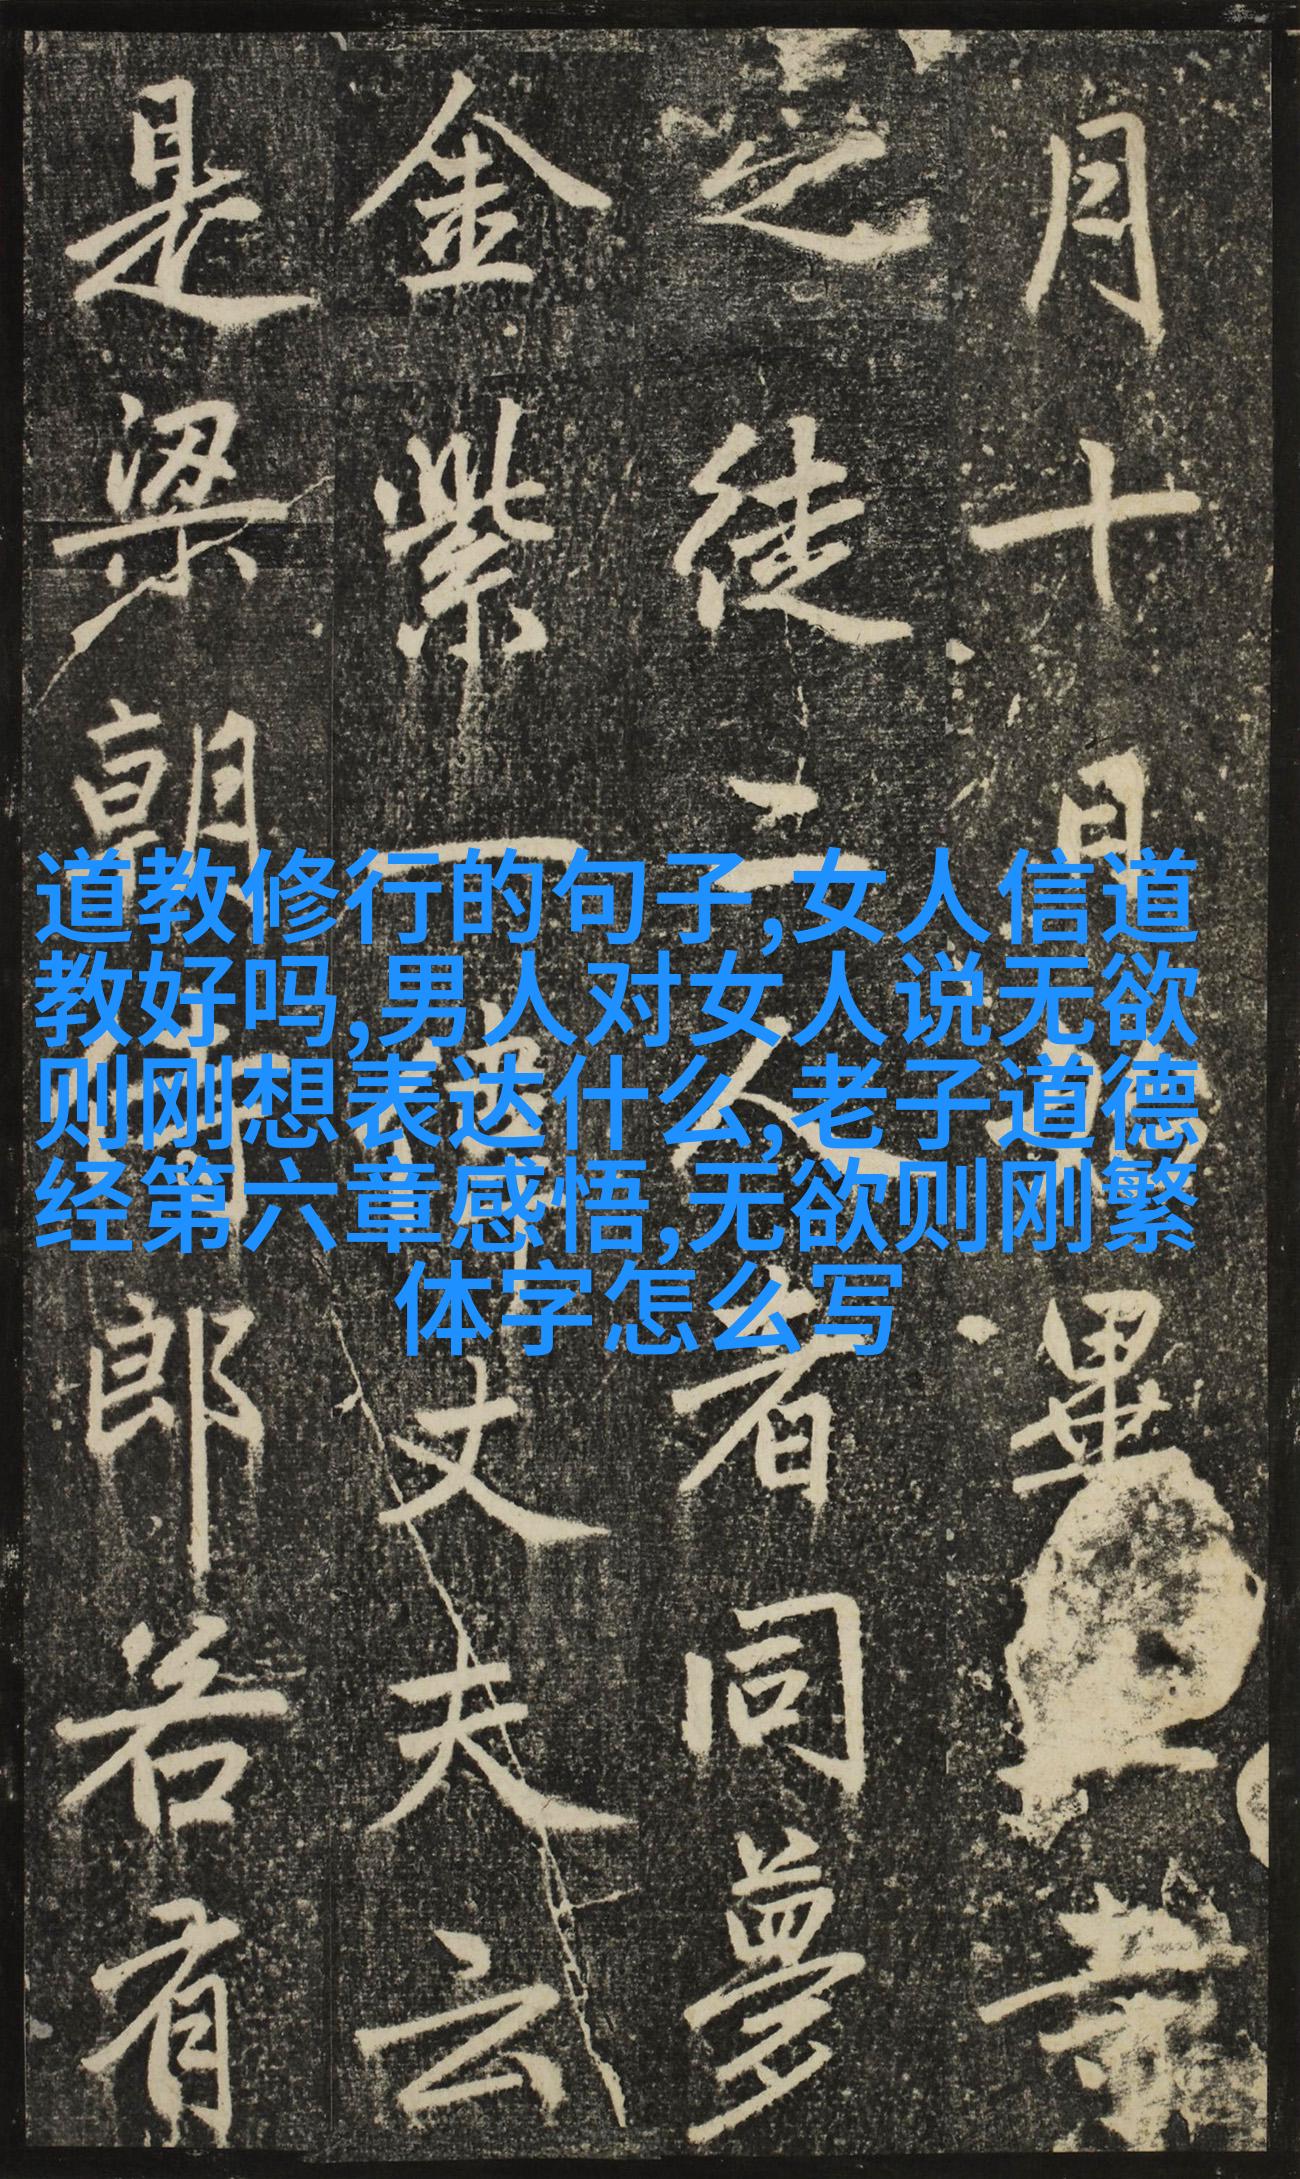 道教修行的句子,女人信道
教好吗,男人对女人说无欲
则刚想表达什么,老子道德
经第六章感悟,无欲则刚繁
体字怎么写
月十日畢
之徒二人者同夢
金紫一丈夫云
是梁朝郎若有